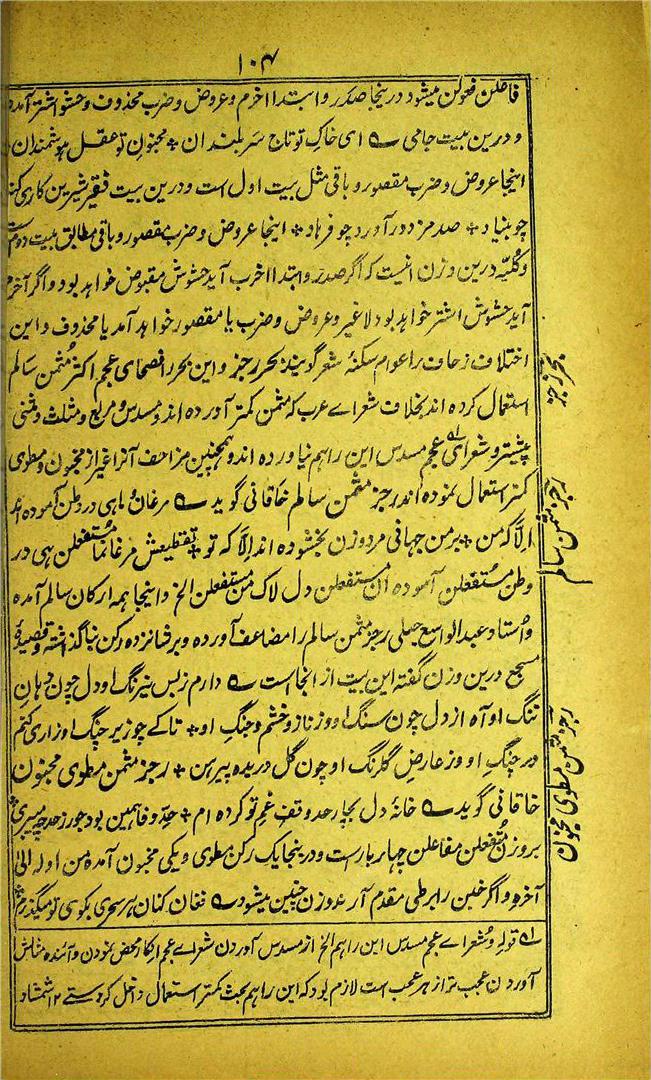 ۱۰۴
فاعلن فعولن میشود درینجا صدر وابتدا اخرم وعروض وضرب محذوف وحشو اشتر آمده
و درین بیت جامی ؎ ای خاک تو تاج سر بلندان * مجنون تو عقل هوشمندان
اینجا عروض وضرب مقصور و باقی مثل بیت اول است و درین بیت فقیر شیرین کاری
چو بنیاد * صد مزدور آورد چو فرهاد * اینجا عروض وضرب مقصور و باقی مطابق بیت دوم
و کلیه درین وزن اینست که اگر صدر وابتدا اخرب آید حشوش مقبوض خواهد بود و اگر اخرم
آید حشوش اشتر خواهد بود لاغیر و عروض وضرب یا مقصور خواهد آمد یا محذوف و این
اختلاف زحاف را عوام سکتهٔ شعر گویند بحر رجز و این بحر را فصحای عجم اکثر مثمن سالم
استعمال کرده اند بخلاف شعراے عرب که مثمن کمتر آورده اند و مسدس و مربع و مثلث و مثنی
بیشتر و شعرای عجم مسدس این را هم نیاورده اند و همچنین مزاحف آنرا غیر از مخبون و مطوی
کمتر استعمال نموده اند رجز مثمن سالم خاقانی گوید ؎ مرغان و ماهی در وطن آسوده اند
الا که من * بر من جهانی مرد و زن بخشوده اند الا که تو * تقطیعش مرغانما مستفعلن هی در
وطن مستفعلن آسوده ان مستفعلن دل لاک من مستفعلن الخ و اینجا همه ارکان سالم آمده
و استاد عبدالواسع جبلی رجز مثمن سالم را مضاعف آورده و بر شانزده رکن بنا گذاشته و قصیدهٔ
مسجع درین وزن گفته این بیت از انجاست ؎ دارم ز بس نیرنگ او دل چون دهان
تنگ او آه از دل چون سنگ او وز ناز و خشم و جنگ او * تا کے چو زیر چنگ او زاری کنم
در چنگ او وز عارض گلرنگ او چون گل دریده پیرهن * رجز مثمن مطوی مخبون
خاقانی گوید ؎ خانهٔ دل بچار حد وقف غم تو کرده ام * حد وفا همین بود جور ز حد چه میبری
بروزن مفتعلن مفاعلن چهار بار است و درینجا یک رکن مطوی و یکی مخبون آمده من اوله الی
آخره و اگر خبن را بر طی مقدم آرند وزن چنین میشود ؎ فغان کنان هر سحری بکوی تو میگذرم
؎ قوله و شعراے عجم مسدس این را هم الخ از مسدس آوردن شعراے عجم انکار محض نمودن و آئنده مثالش
آوردن عجب تر از هر عجب است لازم بود که این را هم بحث کمتر استعمال داخل کردستے ۱۲ شمشاد
بحر رجز
رجز مثمن سالم
رجز مثمن مطوی مخبون